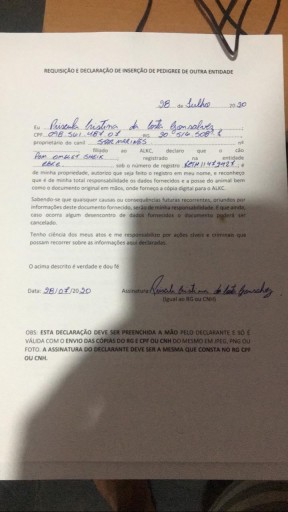 REQUISIÇÃO E DECLARAÇÃO DE INSERÇÃO DE PEDIGREE DE OUTRA ENTIDADE
28 de Julho
Eu Cristina da Costa Gonsalves
CPF RG
proprietário do canil nº
filiado ao ALKC, declaro que o cão
registrado na entidade
sob o número de registro e
de minha propriedade, autorizo que seja feito o registro em meu nome, e reconheço
que é da minha total responsabilidade os dados fornecidos e a posse do animal bem
como o documento original em mãos, onde forneço a cópia digital para o ALKC.
Sabendo-se que quaisquer causas ou consequências futuras recorrentes, oriundos por
informações deste documento fornecido, serão de minha responsabilidade. E que ainda,
caso ocorra algum desencontro de dados fornecidos o documento poderá ser
cancelado.
Tenho ciência dos meus atos e me responsabilizo por ações cíveis e criminais que
possam recorrer as informações aqui declaradas.
O acima descrito é verdade e dou fé
Data: 28/07/2020 Assinatura
(igual ao RG ou CNH)
OBS: ESTA DECLARAÇÃO DEVE SER PREENCHIDA A MÃO PELO DECLARANTE E SÓ É
VÁLIDA COM O ENVIO DAS CÓPIAS DO RG E CPF OU CNH DO MESMO EM JPEG, PNG OU
FOTO. A ASSINATURA DO DECLARANTE DEVE SER A MESMA QUE CONSTA NO RG CPF
OU CNH.